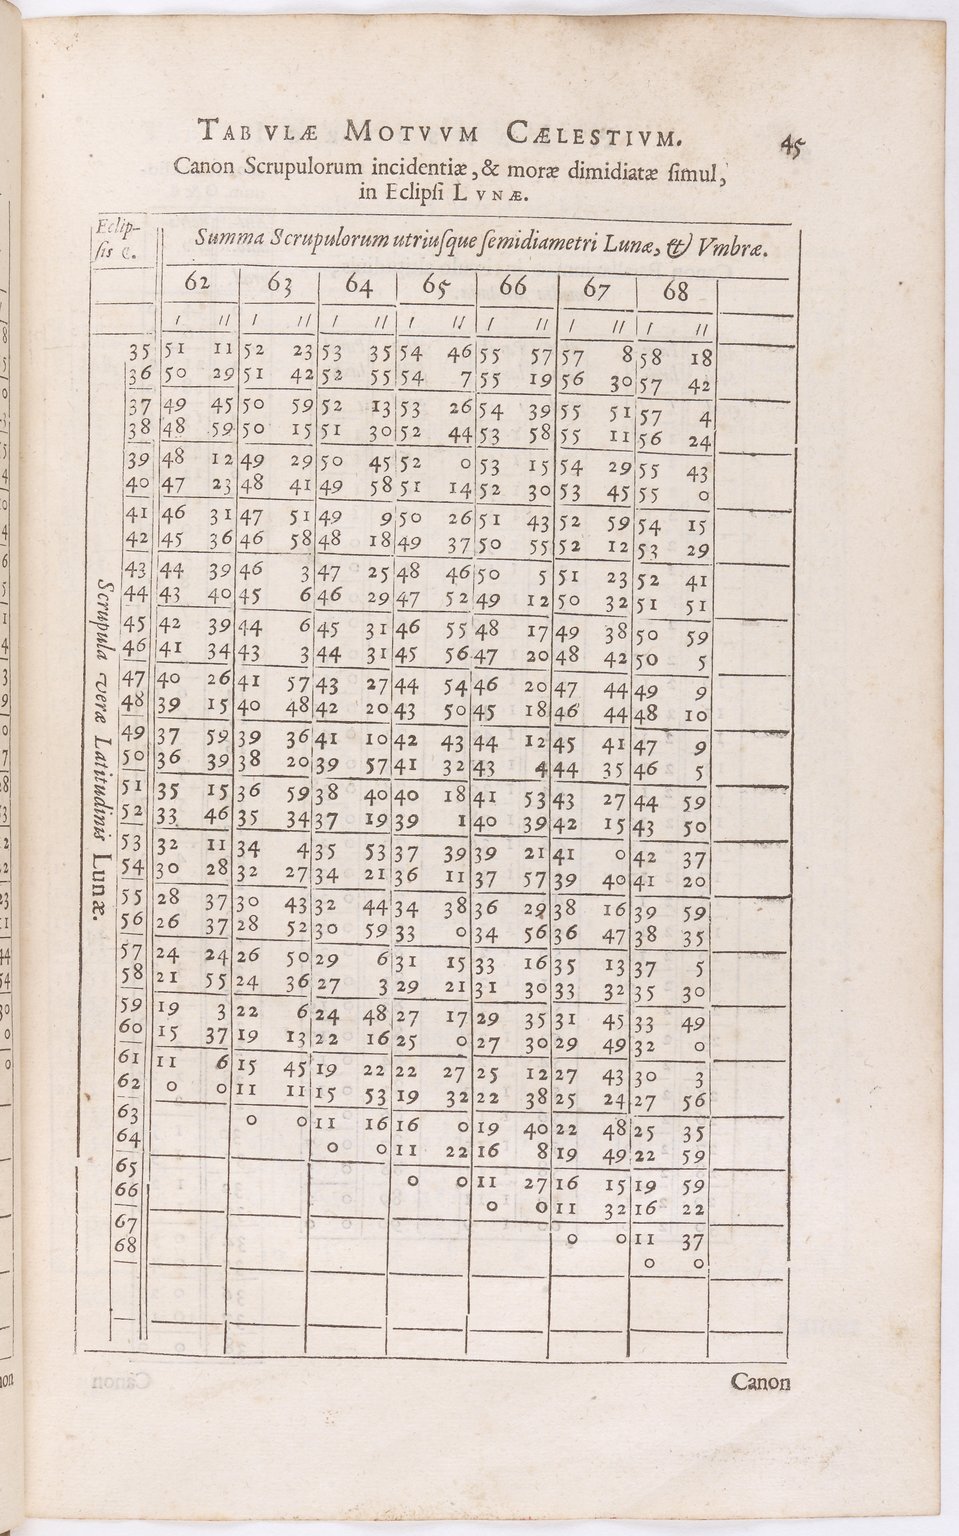 TABVLÆ MOTVVM CÆLESTIVM. 45
Canon Scrupulorum incidentiæ, & moræ dimidiatæ ſimul,
in Eclipſi LVNÆ.
Eclip-
ſis ☾.
Summa Scrupulorum utriuſque ſemidiametri Lunæ, & Vmbræ.
62 63 64 65 66 67 68
′ ″ ′ ″ ′ ″ ′ ″ ′ ″ ′ ″ ′ ″
Scrupula veræ Latitudinis Lunæ.
35 51 11 52 23 53 35 54 46 55 57 57 8 58 18
36 50 29 51 42 52 55 54 7 55 19 56 30 57 42
37 49 45 50 59 52 13 53 26 54 39 55 51 57 4
38 48 59 50 15 51 30 52 44 53 58 55 11 56 24
39 48 12 49 29 50 45 52 0 53 15 54 29 55 43
40 47 23 48 41 49 58 51 14 52 30 53 45 55 0
41 46 31 47 51 49 9 50 26 51 43 52 59 54 15
42 45 36 46 58 48 18 49 37 50 55 52 12 53 29
43 44 39 46 3 47 25 48 46 50 5 51 23 52 41
44 43 40 45 6 46 29 47 52 49 12 50 32 51 51
45 42 39 44 6 45 31 46 55 48 17 49 38 50 59
46 41 34 43 3 44 31 45 56 47 20 48 42 50 5
47 40 26 41 57 43 27 44 54 46 20 47 44 49 9
48 39 15 40 48 42 20 43 50 45 18 46 44 48 10
49 37 59 39 36 41 10 42 43 44 12 45 41 47 9
50 36 39 38 20 39 57 41 32 43 4 44 35 46 5
51 35 15 36 59 38 40 40 18 41 53 43 27 44 59
52 33 46 35 34 37 19 39 1 40 39 42 15 43 50
53 32 11 34 4 35 53 37 39 39 21 41 0 42 37
54 30 28 32 27 34 21 36 11 37 57 39 40 41 20
55 28 37 30 43 32 44 34 38 36 29 38 16 39 59
56 26 37 28 52 30 59 33 0 34 56 36 47 38 35
57 24 24 26 50 29 6 31 15 33 16 35 13 37 5
58 21 55 24 36 27 3 29 21 31 30 33 32 35 30
59 19 3 22 6 24 48 27 17 29 35 31 45 33 49
60 15 37 19 13 22 16 25 0 27 30 29 49 32 0
61 11 6 15 45 19 22 22 27 25 12 27 43 30 3
62 0 0 11 11 15 53 19 32 22 38 25 24 27 56
63 0 0 11 16 16 0 19 40 22 48 25 35
64 0 0 11 22 16 8 19 49 22 59
65 0 0 11 27 16 15 19 59
66 0 0 11 32 16 22
67 0 0 11 37
68 0 0
Canon